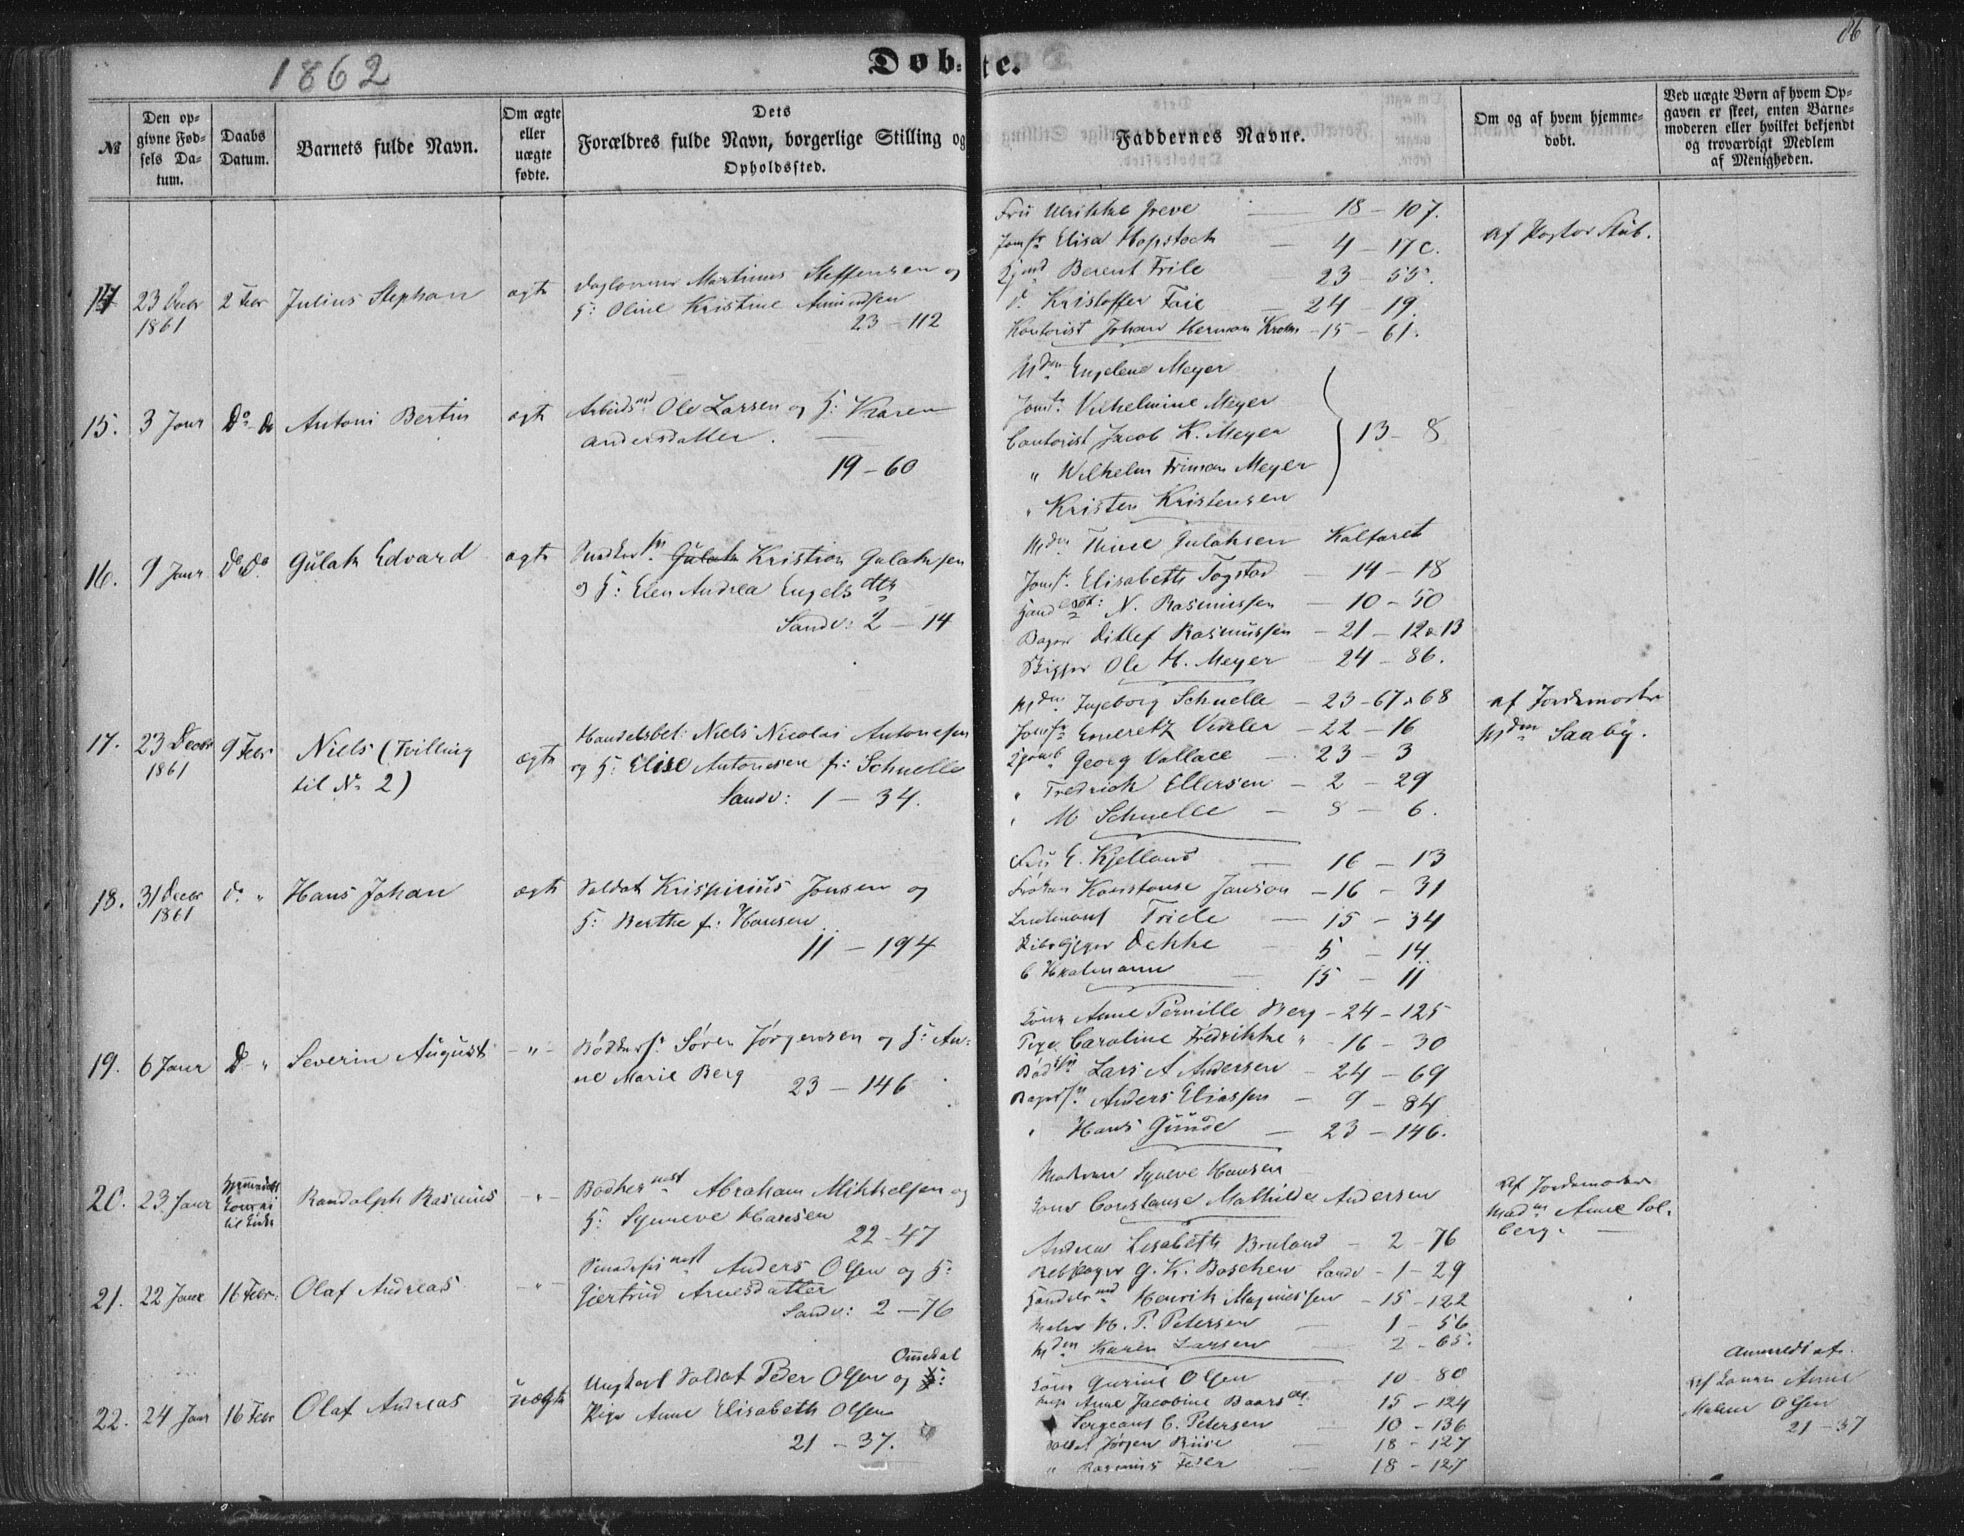 1862
Døb-te.
86
№
Den op-
givne Fød-
sels Da-
tum.
Daabs
Datum.
Barnets fulde Navn.
Om ægte
eller
uægte
fødte.
Dets
Forældres fulde Navn, borgerlige Stilling og
Opholdssted.
Faddernes Navne.
Om og af hvem hjemme-
døbt.
Ved uægte Børn af hvem Op-
gaven er skeet, enten Barne-
moderen eller hvilket bekjendt
og troværdigt Medlem
af Menigheden.
14
23
1861
2 Febr
Julius Stephan
ægte
Martinus Steffensen og
H: Oline Kristine Amundsen
23 - 112
Fru Ulrikke Greve 18 - 107.
Jomfr Elisa Hopstock - 4 - 17c.
Berent Friele 23 - 55.
do Kristoffer Faie - 24 - 19.
Kontorist Johan Herman Krohn - 15 - 61.
af Pastor Stub.
15.
3 Janr
Do - Do
Antoni Bertin
ægte
Arbeidsmd Ole Larsen og H: Karen
Andersdatter.
19 - 60
Mden Engelene Meyer
Jomfr Vilhelmine Meyer
Contorist Jacob K. Meyer 13 - 8
" Wilhelm Friman Meyer
" Kristen Kristensen
16.
9 Janr
Do Do
Gulak Edvard
ægte
Snedkersv. Gulak Kristian Gulaksen
og H: Elen Andrea Engelsdtr
Sandv: 2 - 14
Mden Thine Gulaksen Kalfaret
Jomfr. Elisabeth Togstad - 14 - 18
N. Rasmussen - 10 - 50
Bager Ditlef Rasmussen - 21 - 12 & 13
Skipper Ole H. Meyer - 24 - 86.
17.
23 Decbr
1861
9 Febr
Niels (Tvilling
til No 2)
ægte
Handelsbet: Niels Nicolai Antonesen
og H: Elise Antonesen f: Schnelle
Sandv: 1 - 34.
Mden Ingeborg Schnelle - 23 - 67 & 68
Jomfr Emeretz Vedeler - 22 - 16
Georg Vallace - 23 - 3
" Fredrich Ellersen - 2 - 29
" M Schnelle - 8 - 6.
af Jordemoder
Mden Saaby.
18.
31 Decbr
1861
do "
Hans Johan
ægte
Soldat Krispinus Jonsen og
H: Berthe f: Hansen
11 - 194
Fru E. Kjelland 16 - 13
Frøken Konstanse Janson - 16 - 31
Triele 15 - 34
Dekke 5 - 14
15 - 11
19.
6 Janr
D "
Severin August
- " -
Bødkersv. Søren Jørgensen og H: An-
ne Marie Berg
23 - 146
Kone Anne Pernille Berg - 24 - 125
Pige Caroline Fredrikke " - 16 - 30
Lars A Andersen - 24 - 69
Anders Eliassen - 9 - 84
" Hans Gunde - 23 - 146.
20.
23 Janr
Randolph Rasmus
- " -
Bødkermest Abraham Mikkelsen og
H: Synneve Hansen
22 - 47
Madame Syneve Hansen
Jomf Constanse Mathilde Andersen
af Jordemoder
Madm Anne Sol-
berg.
21.
22 Janr
16 Febr:
Olaf Andreas
- " -
Anders Olsen og H:
Gjertrud Arnesdatter
Sandv: 2 - 76
Andrea Lisabeth Bruland - 2 - 76
G. K. Boschen Sandv - 1 - 29
Henrik Magnussen - 15 - 122
Maler H. P. Petersen 1 - 56
Mden Karen Larsen 2 - 65.
22.
24 Janr
16 Febr
Olaf Andreas
uægte
Omsdal
Ungkarl Soldat Peder Olsen og
Pige Anne Elisabeth Olsen
21 - 37.
Kone Gurine Olsen 10 - 80
Pige Anne Jacobine Baarsdtr 15 - 124
Sergeant C. Petersen 10 - 136
Soldat Jørgen Riise 18 - 127
" Rasmus Feier 18 - 127
Anmeldt af
af Konen Anne
Malene Olsen
21 - 37